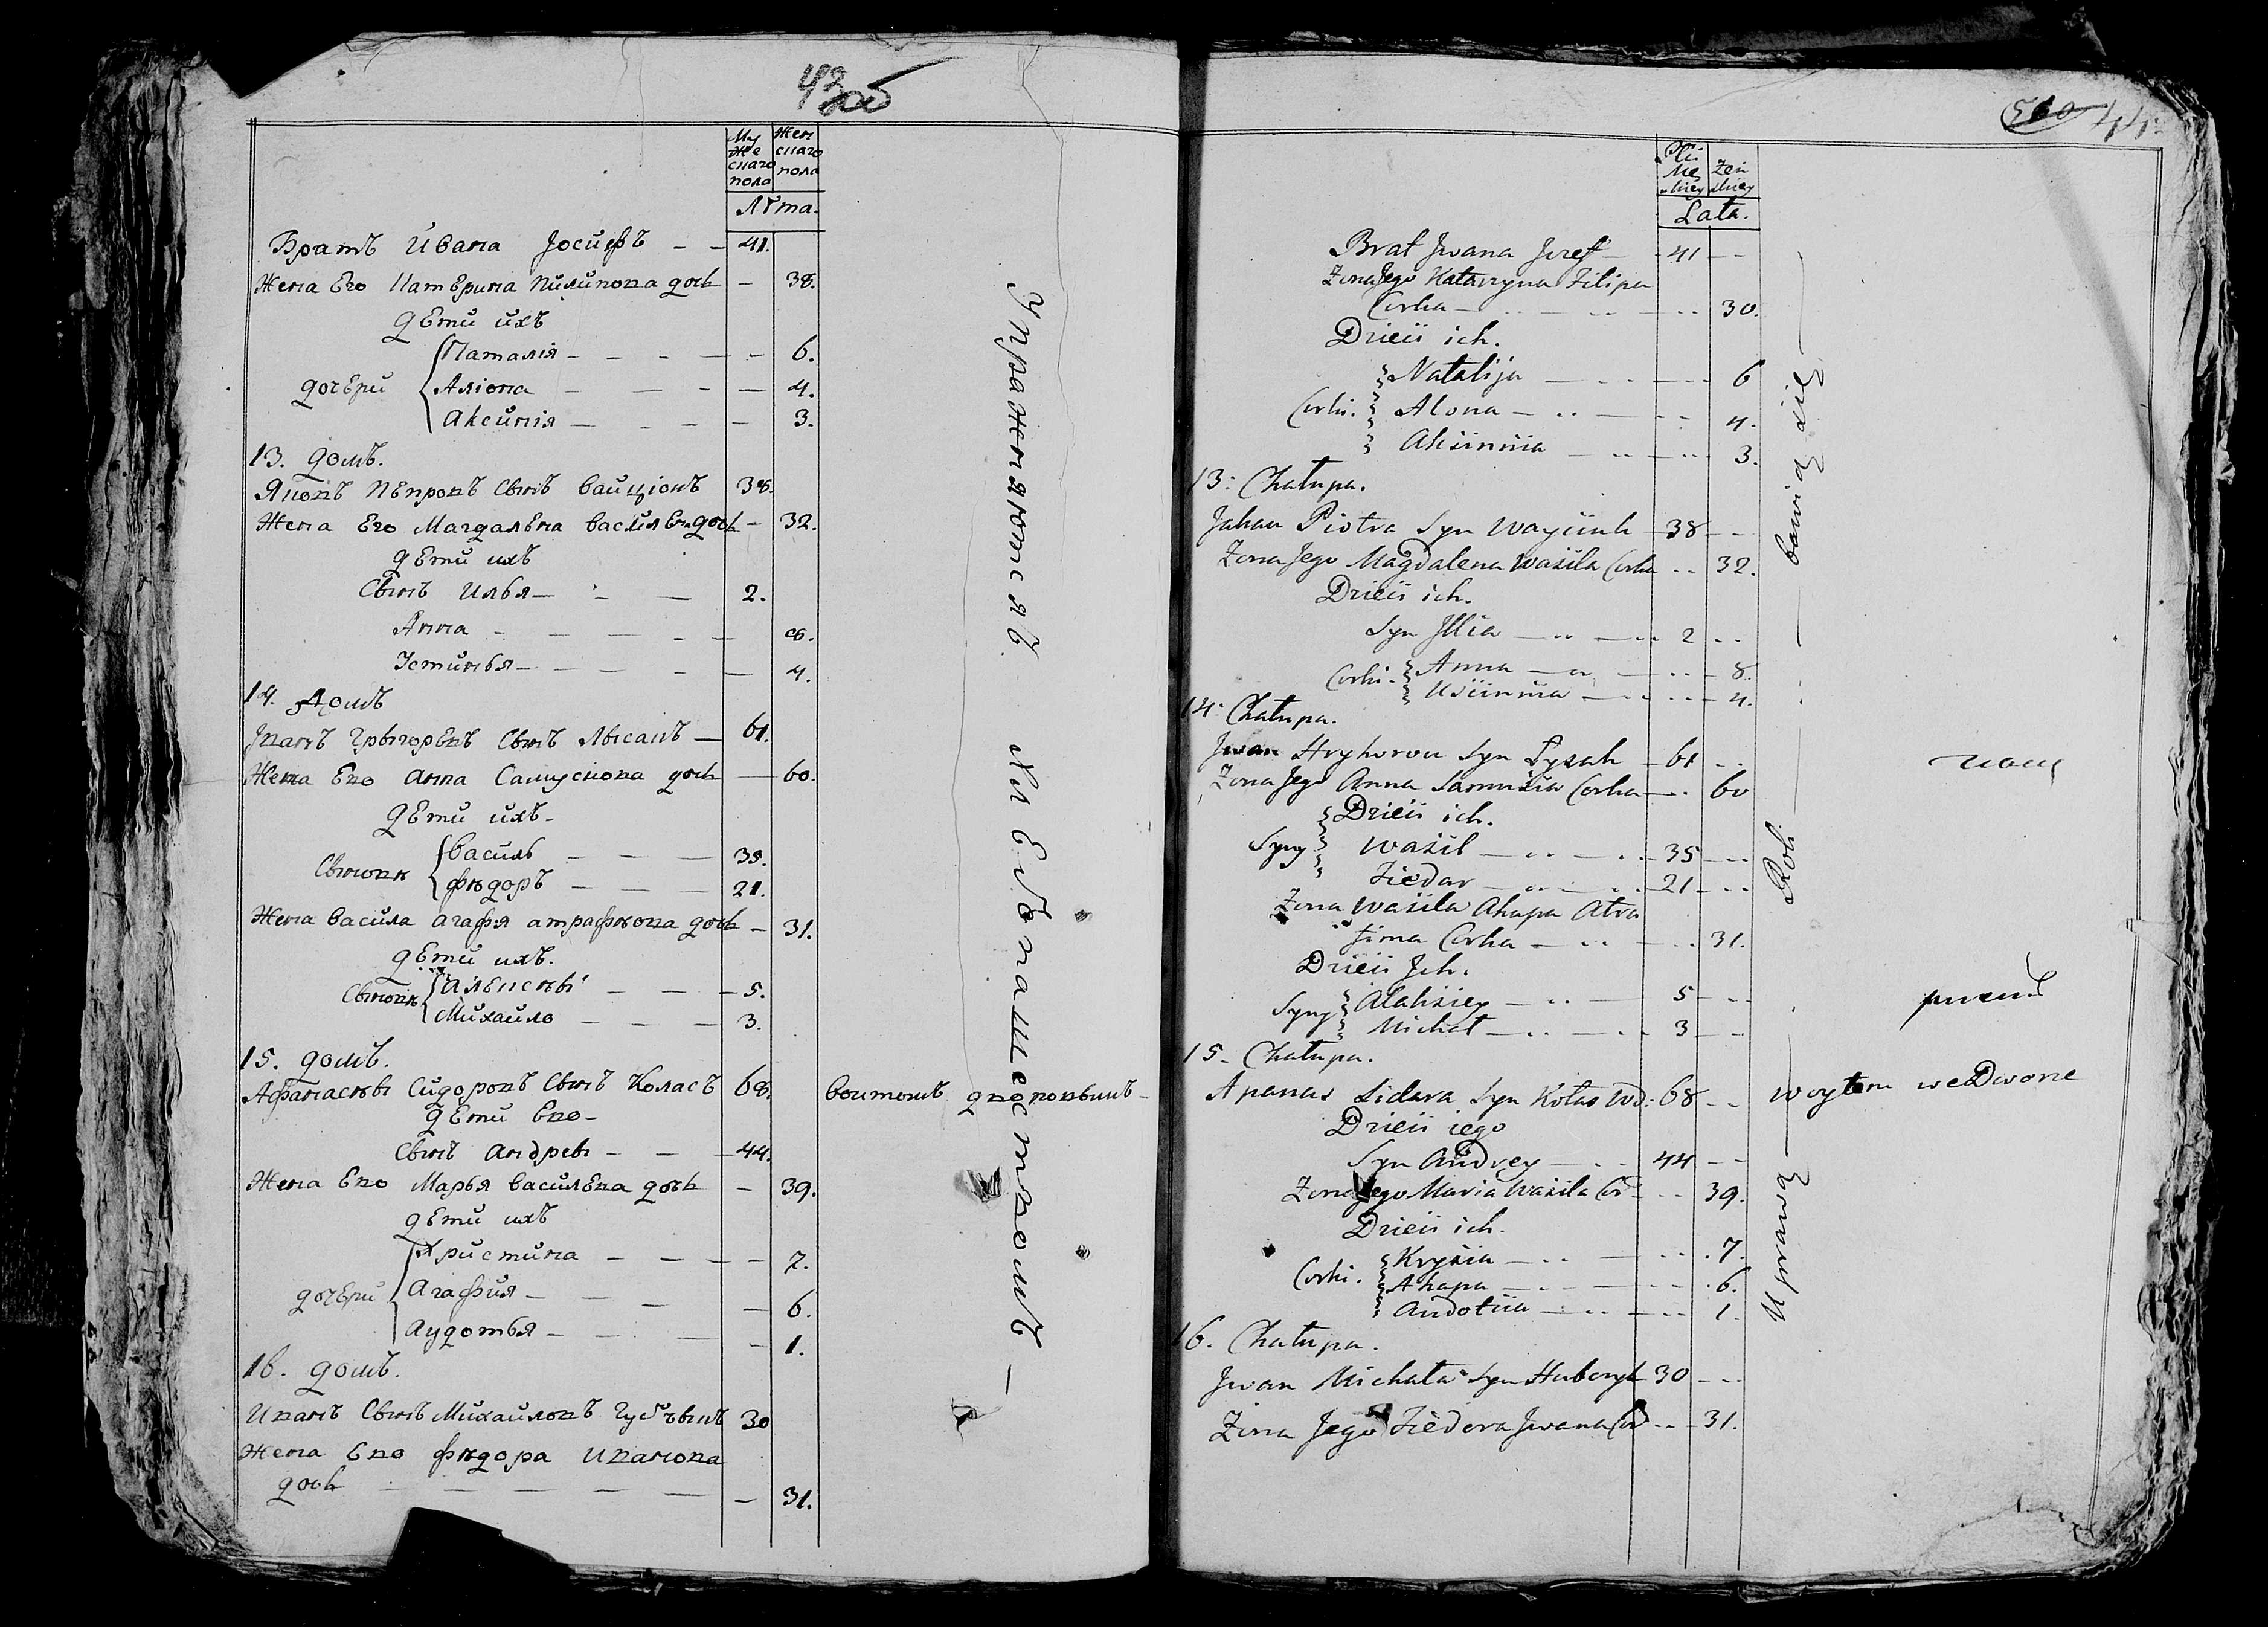 43об
Му
же
скаго
пола
Жен
скаго
пола
Лѣта.
Братъ Ивана Іосифъ — — 41.
Жена Его Катерина Пилипова дочь — 38.
дѣти ихъ
Наталія — — — — — 6.
дочери Аліона — — — — 4.
Аксинія — — — — 3.
13. домъ.
Яковъ Петровъ сынъ Вайціонъ 38.
Жена Его Магдалена Васильева дочь — 32.
дѣти ихъ
Сынъ Илья — — — 2.
Анна — — — — — 8.
Устинья — — — — — 4.
14. Домъ
Іванъ Грыгоревъ Сынъ Лысакъ — 61.
Жена Его Анна Самусиова дочь — 60.
дѣти ихъ —
Василь — — — 35.
Сыновя
Фѣдоръ — — — 21.
Жена Васила Агафя Атрафѣова дочь — 31.
дѣти ихъ.
Алексѣй — — — 5.
Сыновя
Михайло — — — 3.
15. домъ.
Афанасѣй Сидоровъ Сынъ Коласъ 68. Воитомъ дворовымъ —
дѣти Его —
Сынъ Андрей — — — 44.
Жена Его Марья Васильева дочь — 39.
дѣти ихъ
Христина — — — — 7.
дочери Агафия — — — — 6.
Аудотья — — — — 1.
16. домъ.
Иванъ Сынъ Михайловъ 30
Жена Его Фѣдора Иванова
дочь — — — — — — 31.
Упражняются Хлебопашествомъ —
500 44
Płci
Męskiey
Żeńskiey
Lata.
Brat Jwana Jozef — 41 — —
Zona Jego Katarzyna Filipa
Corka — .. — .. — .. 30.
Dzieci ich.
Natalija — .. — .. 6
Corki. Alona — .. — — 4.
Aksinnia — .. — .. 3.
13: Chałupa.
Jakau Piotra Syn Wayciuk — 38 — —
Zona Jego Magdalena Wasila Corka .. 32.
Dzieci ich.
Syn Jllia — .. — .. 2 ..
Corki. Anna — .. — .. 8.
Usciinnia — .. — .. 4.
14: Chałupa.
Jwan Hryhorou Syn Łysak — 61 ..
Zona Jego Anna Samusia Corka — .. 60
Dzieci ich.
Syny Wasil — .. — .. 35 — ..
Fiedar — .. — .. 21 — ..
Zona Wasila Ahapa Atra
fima Corka — .. — .. 31.
Dzieci Jch.
Syny Alaksiey — .. — 5 — ..
Michał — .. — .. 3 — —
15. Chałupa.
Apanas Sidara Syn Kołas Wd: 68 — — woytem we Dworze
Dzieci iego
Syn Andrey — .. 44 — —
Zona Jego Maria Wasila Cor — .. 39.
Dzieci ich.
Krysia — .. — .. 7.
Corki. Ahapa — .. — .. 6.
Audotiia — .. — — 1.
16. Chałupa.
Jwan Michała Syn 30 — — —
Zona Jego Fiedora Jwana Cor — .. — 31.
Uprawą — Roli — bawią się —